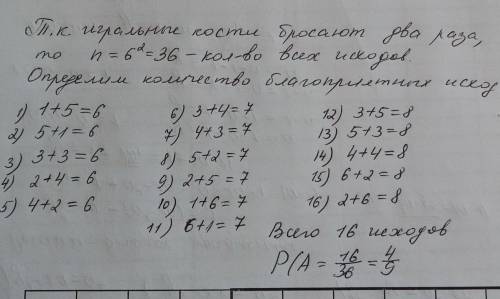 Т.к. игральные кости бросают два раза,
то n = 6² = 36 – кол-во всех исходов.
Определим количество благоприятных исход
1) 1+5=6
2) 5+1=6
3) 3+3=6
4) 2+4=6
5) 4+2=6
6) 3+4=7
7) 4+3=7
8) 5+2=7
9) 2+5=7
10) 1+6=7
11) 6+1=7
12) 3+5=8
13) 5+3=8
14) 4+4=8
15) 6+2=8
16) 2+6=8
Всего 16 исходов
P(A = 16/36 = 4/9